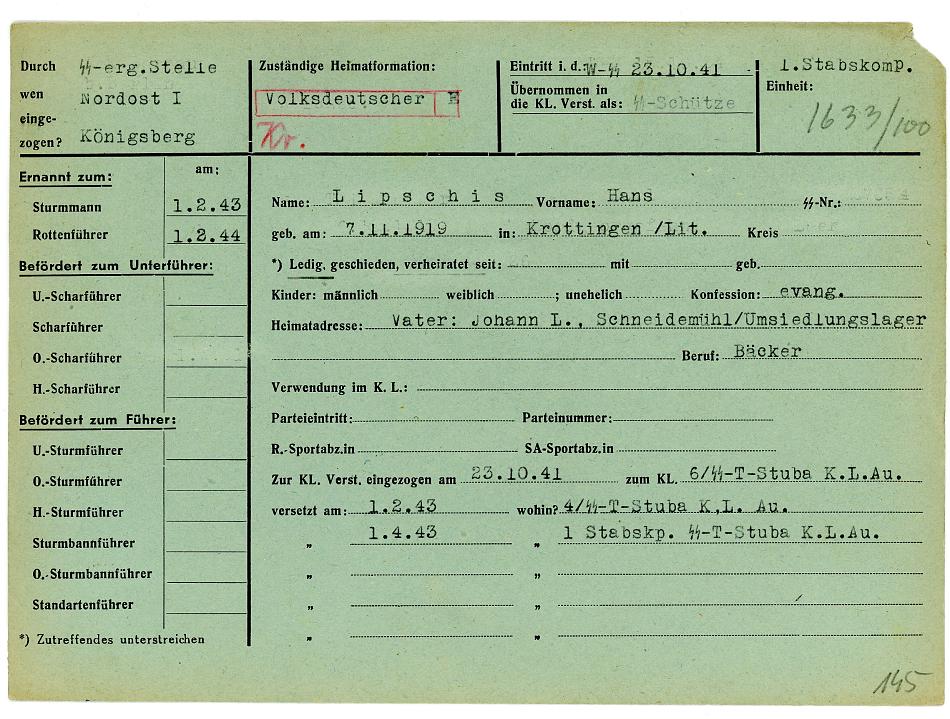 Durch wen eingezogen? ᛋᛋ-erg.Stelle
Nordost I
Königsberg
Zuständige Heimatformation:
Volksdeutscher
Eintritt i. d.: W-ᛋᛋ 23.10.41
Übernommen in
die KL. Verst. als: ᛋᛋ-Schütze
1.Stabskomp.
Einheit:
1633/100
Ernannt zum: am:
Sturmmann 1.2.43
Rottenführer 1.2.44
Befördert zum Unterführer:
U.-Scharführer
Scharführer
O.-Scharführer
H.-Scharführer
Befördert zum Führer:
U.-Sturmführer
O.-Sturmführer
H.-Sturmführer
Sturmbannführer
O.-Sturmbannführer
Standartenführer
*) Zutreffendes unterstreichen
Name: Lipschis Vorname: Hans ᛋᛋ-Nr.:
geb. am: 7.11.1919 in: Krottingen /Lit. Kreis
*) Ledig, geschieden, verheiratet seit: mit geb.
Kinder: männlich weiblich ; unehelich Konfession: evang.
Heimatadresse: Vater: Johann L., Schneidemühl/Umsiedlungslager
Beruf: Bäcker
Verwendung im K. L.:
Parteieintritt: Parteinummer:
R.-Sportabz.in SA-Sportabz.in
Zur KL. Verst. eingezogen am 23.10.41 zum KL. 6/ᛋᛋ-T-Stuba K.L.Au.
versetzt am: 1.2.43 wohin? 4/ᛋᛋ-T-Stuba K.L. Au.
„ 1.4.43 „ 1 Stabskp. ᛋᛋ-T-Stuba K.L.Au.
„ „
„ „
„ „
145